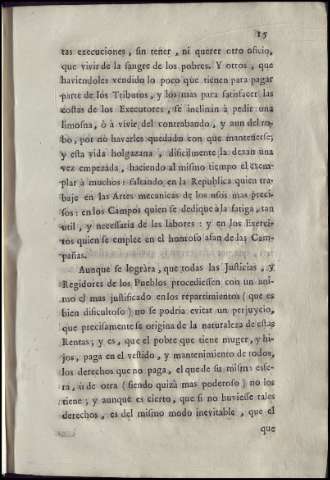 15
tas execuciones, sin tener, ni querer otro oficio,
que vivir de la sangre de los pobres. Y otros, que
haviendoles vendido lo poco que tienen para pagar
parte de los Tributos, y los mas para satisfacer las
costas de los Executores, se inclinan à pedir una
limosna, ò à vivir del contrabando, y aun del ro-
bo, por no haverles quedado con que mantenerse;
y esta vida holgazana, dificilmente la dexan una
vez empezada, haciendo al mismo tiempo el exem-
plar à muchos: faltando en la Republica quien tra-
baje en las Artes mecanicas de los usos mas preci-
sos: en los Campos quien se dedique à la fatiga, tan
util, y necessaria de las labores: y en los Exerci-
tos quien se emplee en el honroso afan de las Cam-
pañas.
Aunque se lográra, que todas las Justicias, y
Regidores de los Pueblos procediessen con un ani-
mo el mas justificado en los repartimientos (que es
bien dificultoso) no se podria evitar un perjuycio,
que precisamente se origina de la naturaleza de estas
Rentas; y es, que el pobre que tiene muger, y hi-
jos, paga en el vestido, y mantenimiento de todos,
los derechos que no paga, el que de su misma esfe-
ra, ù de otra (siendo quizà mas poderoso) no los
tiene; y aunque es cierto, que si no huviesse tales
derechos, es del mismo modo inevitable, que el
que